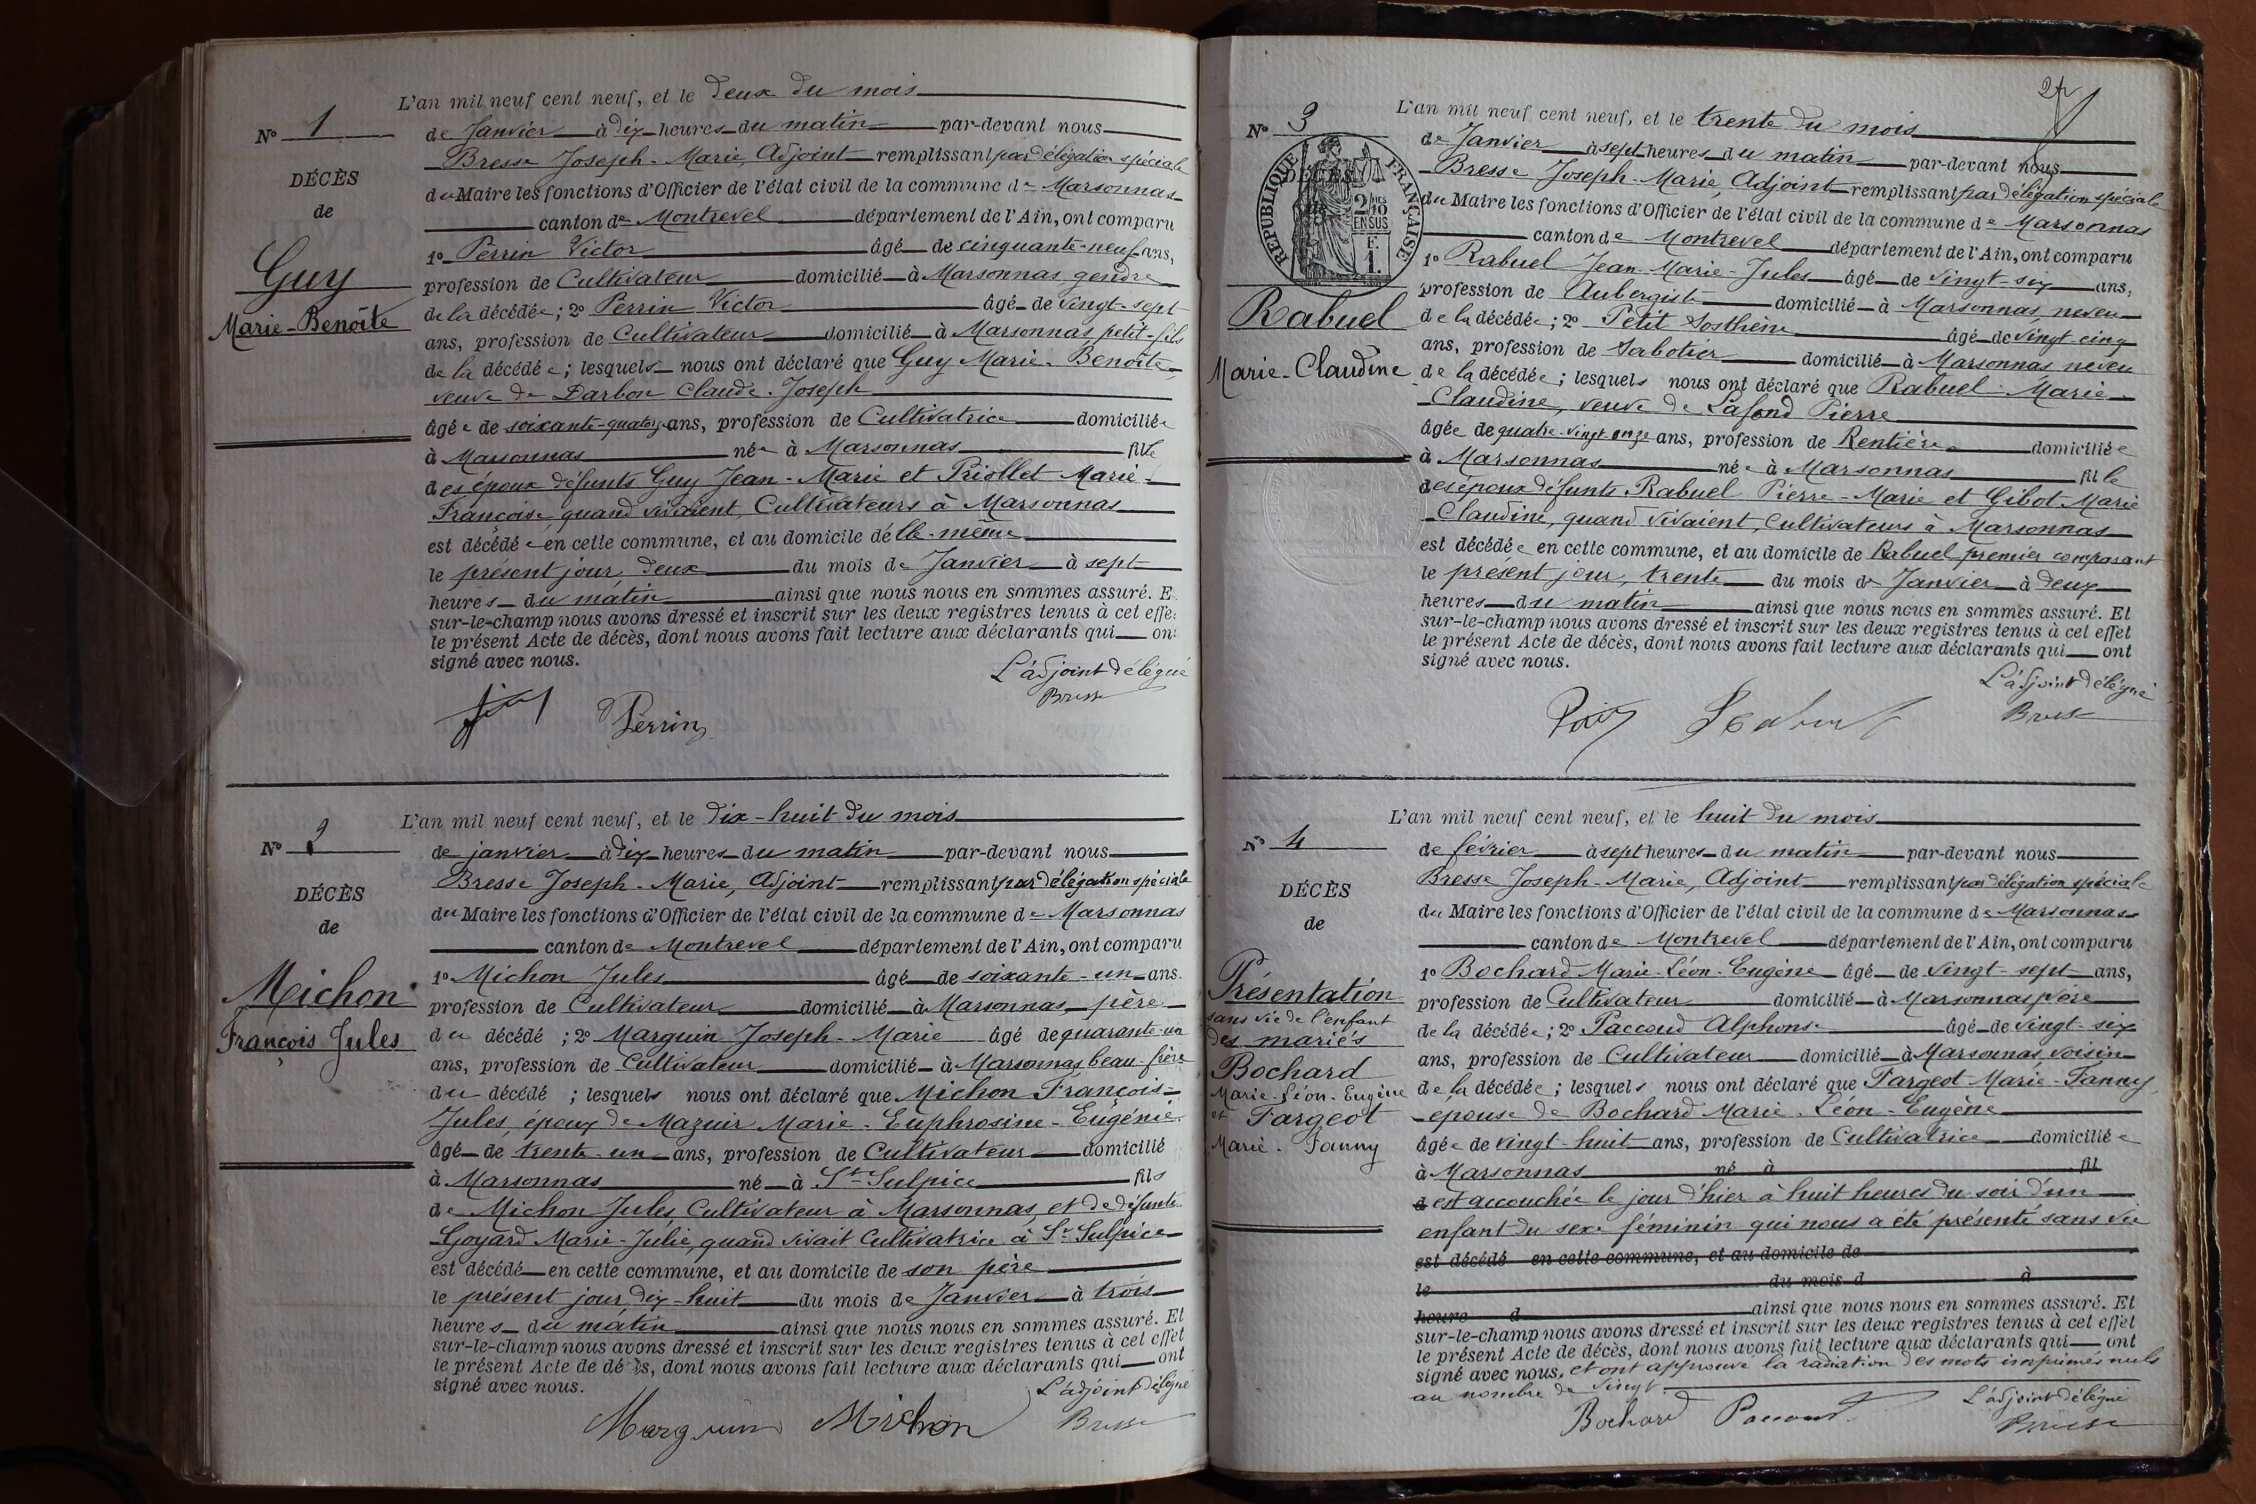 N° 1
DÉCÈS
de
Guy
Marie-Benoîte
L'an mil neuf cent neuf, et le deux du mois
de Janvier à dix heures du matin par-devant nous
Bresse Joseph-Marie, Adjoint remplissant par délégation spéciale
du Maire les fonctions d'Officier de l'état civil de la commune de Marsonnas
canton de Montrevel département de l'Ain, ont comparu
1° Perrin Victor âgé de cinquante-neuf ans,
profession de Cultivateur domicilié à Marsonnas, gendre
de la décédée; 2° Perrin Victor âgé de vingt-sept
ans, profession de Cultivateur domicilié à Marsonnas, petit-fils
de la décédée; lesquels nous ont déclaré que Guy Marie-Benoîte,
veuve de Darbon Claude-Joseph
âgée de soixante-quatorze ans, profession de Cultivatrice domiciliée
à Marsonnas née à Marsonnas fille
des époux défunts Guy Jean-Marie et Priollet Marie-
Françoise quand vivaient, Cultivateurs à Marsonnas
est décédée en cette commune, et au domicile d'elle-même
le présent jour deux du mois de Janvier à sept
heures du matin ainsi que nous nous en sommes assuré. E
sur-le-champ nous avons dressé et inscrit sur les deux registres tenus à cet effe
le présent Acte de décès, dont nous avons fait lecture aux déclarants qui on
signé avec nous.
L'adjoint délégué
Bresse
Perrin
N° 2
DÉCÈS
de
Michon
François Jules
L'an mil neuf cent neuf, et le dix-huit du mois
de janvier à dix heures du matin par-devant nous
Bresse Joseph-Marie, Adjoint remplissant par délégation spéciale
du Maire les fonctions d'Officier de l'état civil de la commune de Marsonnas
canton de Montrevel département de l'Ain, ont comparu
1° Michon Jules âgé de soixante-un ans.
profession de Cultivateur domicilié à Marsonnas père
du décédé; 2° Marguin Joseph-Marie âgé de quarante-un
ans, profession de Cultivateur domicilié à Marsonnas, beau-frère
du décédé; lesquels nous ont déclaré que Michon François-
Jules, époux de Mazuir Marie-Euphrosine-Eugénie
âgé de trente-un ans, profession de Cultivateur domicilié
à Marsonnas né à St-Sulpice fils
de Michon Jules, Cultivateur à Marsonnas, et de défunte
Goyard Marie-Julie, quand vivait Cultivatrice à St-Sulpice
est décédé en cette commune, et au domicile de son père
le présent jour dix-huit du mois de Janvier à trois
heures du matin ainsi que nous nous en sommes assuré. Et
sur-le-champ nous avons dressé et inscrit sur les deux registres tenus à cet effet
le présent Acte de décès, dont nous avons fait lecture aux déclarants qui ont
signé avec nous.
L'adjoint délégué
Marguin Michon Bresse
N° 3
RÉPUBLIQUE FRANÇAISE
DÉCÈS
de
2/10 EN SUS
1 F.
Rabuel
Marie-Claudine
L'an mil neuf cent neuf, et le trente du mois
de Janvier à sept heures du matin par-devant nous
Bresse Joseph-Marie, Adjoint remplissant par délégation spéciale
du Maire les fonctions d'Officier de l'état civil de la commune de Marsonnas
canton de Montrevel département de l'Ain, ont comparu
1° Rabuel Jean-Marie-Jules âgé de vingt-six ans,
profession de Aubergiste domicilié à Marsonnas, neveu
de la décédée; 2° Petit Sosthène âgé de vingt cinq
ans, profession de Sabotier domicilié à Marsonnas neveu
de la décédée; lesquels nous ont déclaré que Rabuel Marie-
Claudine, veuve de Lafond Pierre
âgée de quatre-vingt-onze ans, profession de Rentière domiciliée
à Marsonnas née à Marsonnas fille
des époux défunts Rabuel Pierre-Marie et Gibot Marie
Claudine, quand vivaient, Cultivateurs à Marsonnas
est décédée en cette commune, et au domicile de Rabuel, premier comparant
le présent jour, trente du mois de Janvier à deux
heures du matin ainsi que nous nous en sommes assuré. Et
sur-le-champ nous avons dressé et inscrit sur les deux registres tenus à cet effet
le présent Acte de décès, dont nous avons fait lecture aux déclarants qui ont
signé avec nous.
L'adjoint délégué
Rabuel Bresse
N° 4
DÉCÈS
de
Présentation
sans vie de l'enfant
des mariés
Bochard
Marie-Léon-Eugène
et Fargeot
Marie-Fanny
L'an mil neuf cent neuf, et le huit du mois
de février à sept heures du matin par-devant nous
Bresse Joseph-Marie, Adjoint remplissant par délégation spéciale
du Maire les fonctions d'Officier de l'état civil de la commune de Marsonnas
canton de Montrevel département de l'Ain, ont comparu
1° Bochard Marie-Léon-Eugène âgé de vingt-sept ans,
profession de Cultivateur domicilié à Marsonnas père
de la décédée; 2° Paccoud Alphonse âgé de vingt-six
ans, profession de Cultivateur domicilié à Marsonnas, voisin
de la décédée; lesquels nous ont déclaré que Fargeot Marie-Fanny,
épouse de Bochard Marie-Léon-Eugène
âgée de vingt-huit ans, profession de Cultivatrice domiciliée
à Marsonnas né à fil
d est accouchée le jour d'hier à huit heures du soir d'un
enfant du sexe féminin qui nous a été présenté sans vie
est décédé en cette commune, et au domicile de
le du mois d à
heure d ainsi que nous nous en sommes assuré. Et
sur-le-champ nous avons dressé et inscrit sur les deux registres tenus à cet effet
le présent Acte de décès, dont nous avons fait lecture aux déclarants qui ont
signé avec nous, et ont approuvé la radiation des mots imprimés nuls
au nombre de vingt.
L'adjoint délégué
Bochard Paccoud Bresse